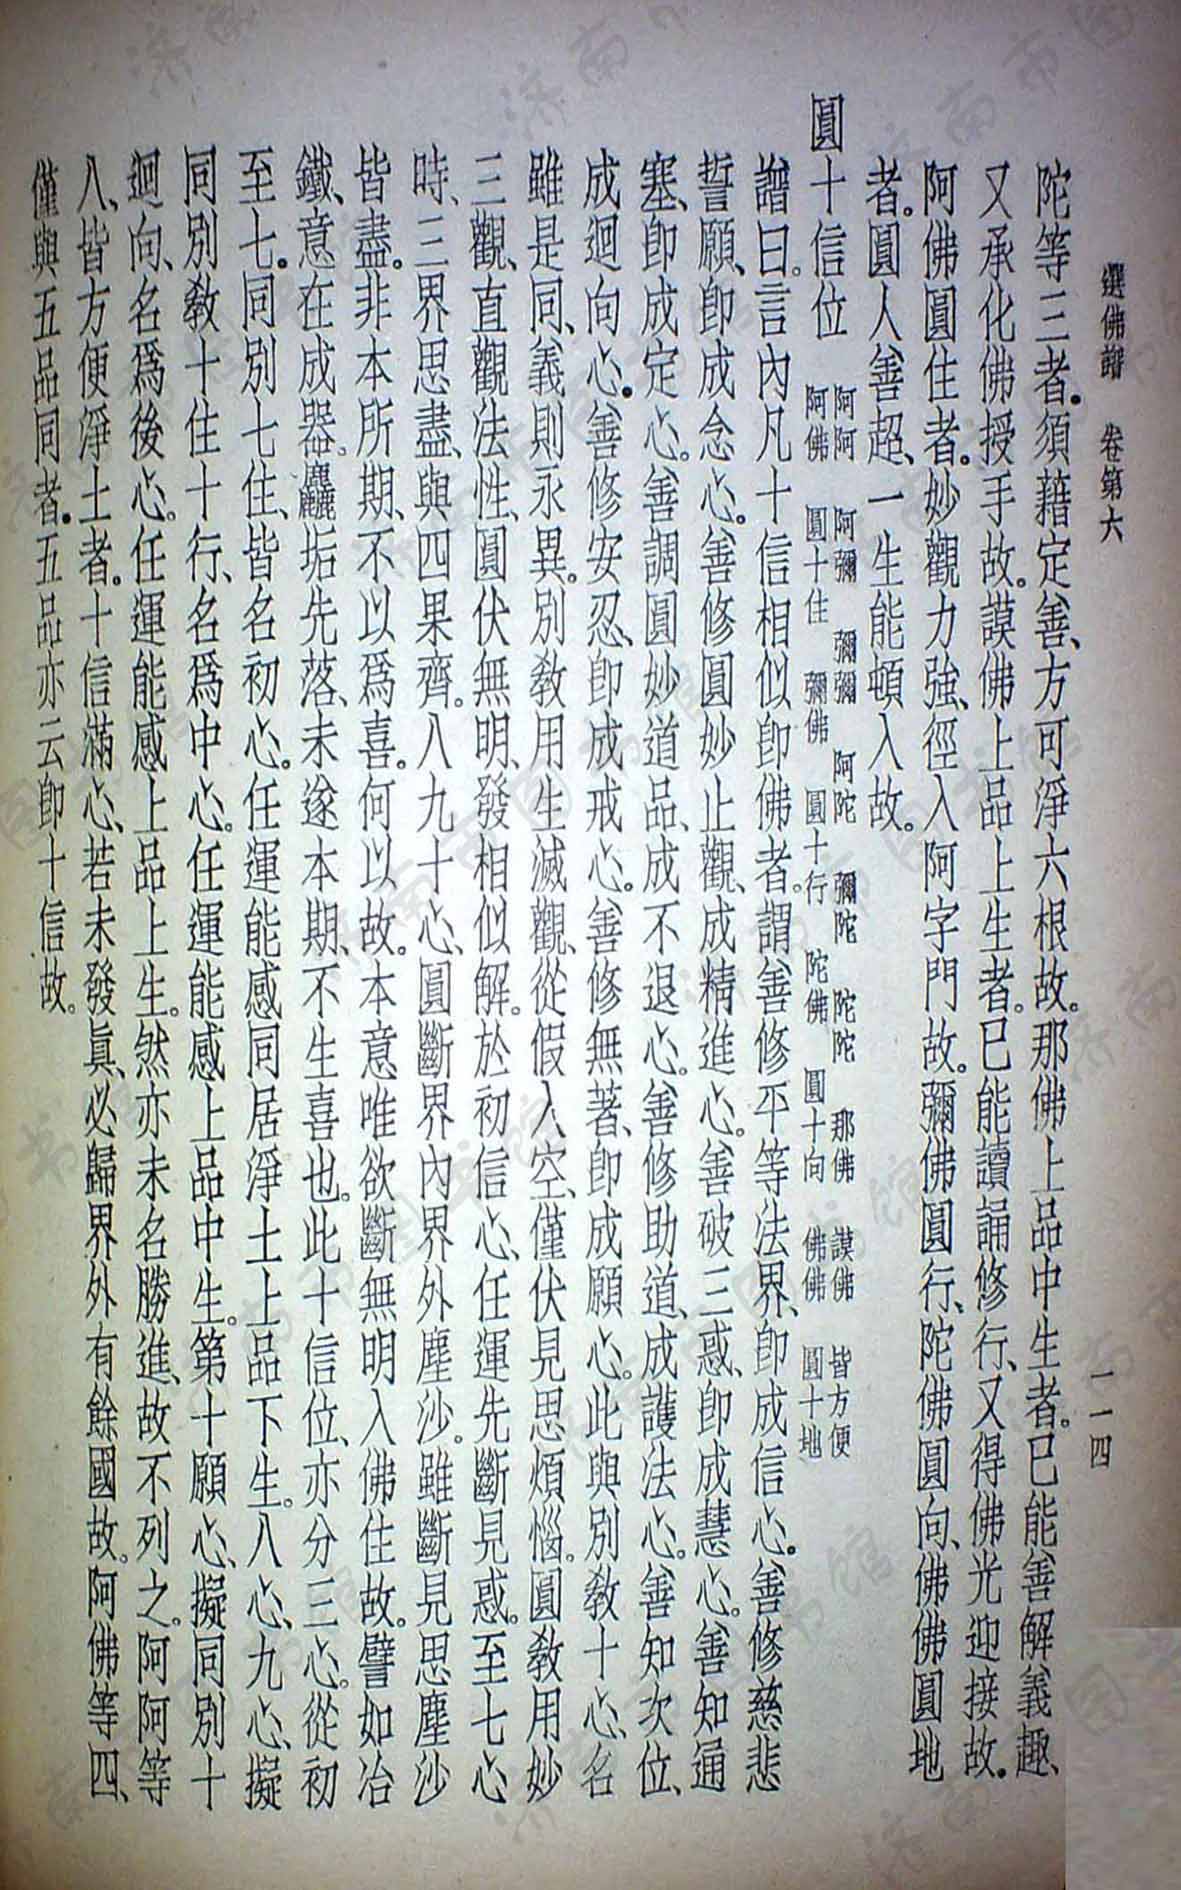 選佛譜　卷第六　一一四
陀等三者。須藉定善、方可淨六根故。那佛上品中生者。已能善解義趣、
又承化佛授手故。謨佛上品上生者。已能讀誦修行、又得佛光迎接故。
阿佛圓住者。妙觀力強、徑入阿字門故。彌佛圓行、陀佛圓向、佛佛圓地
者。圓人善超、一生能頓入故。
圓十信位
阿阿　阿彌　彌彌　阿陀　彌陀　陀陀　那佛　謨佛　皆方便
阿佛　圓十住　彌佛　圓十行　陀佛　圓十向　佛佛　圓十地
譜曰。言內凡十信相似卽佛者。謂善修平等法界、卽成信心。善修慈悲
誓願、卽成念心。善修圓妙止觀、成精進心。善破三惑、卽成慧心。善知通
塞、卽成定心。善調圓妙道品、成不退心。善修助道、成護法心。善知次位、
成迴向心。善修安忍、卽成戒心。善修無著、卽成願心。此與別教十心、名
雖是同、義則永異。別教用生滅觀、從假入空、僅伏見思煩惱。圓教用妙
三觀、直觀法性、圓伏無明、發相似解。於初信心、任運先斷見惑。至七心
時、三界思盡、與四果齊。八九十心、圓斷界內界外塵沙。雖斷見思塵沙
皆盡。非本所期、不以爲喜。何以故。本意唯欲斷無明入佛住故。譬如冶
鐵、意在成器。麤垢先落、未遂本期、不生喜也。此十信位、亦分三心。從初
至七。同別七住、皆名初心。任運能感同居淨土上品下生。八心、九心、擬
同別教十住十行、名爲中心。任運能感上品中生。第十願心、擬同別十
迴向、名爲後心。任運能感上品上生。然亦未名勝進、故不列之。阿阿等
八、皆方便淨土者。十信滿心、若未發眞、必歸界外有餘國故。阿佛等四、
僅與五品同者。五品亦云卽十信故。